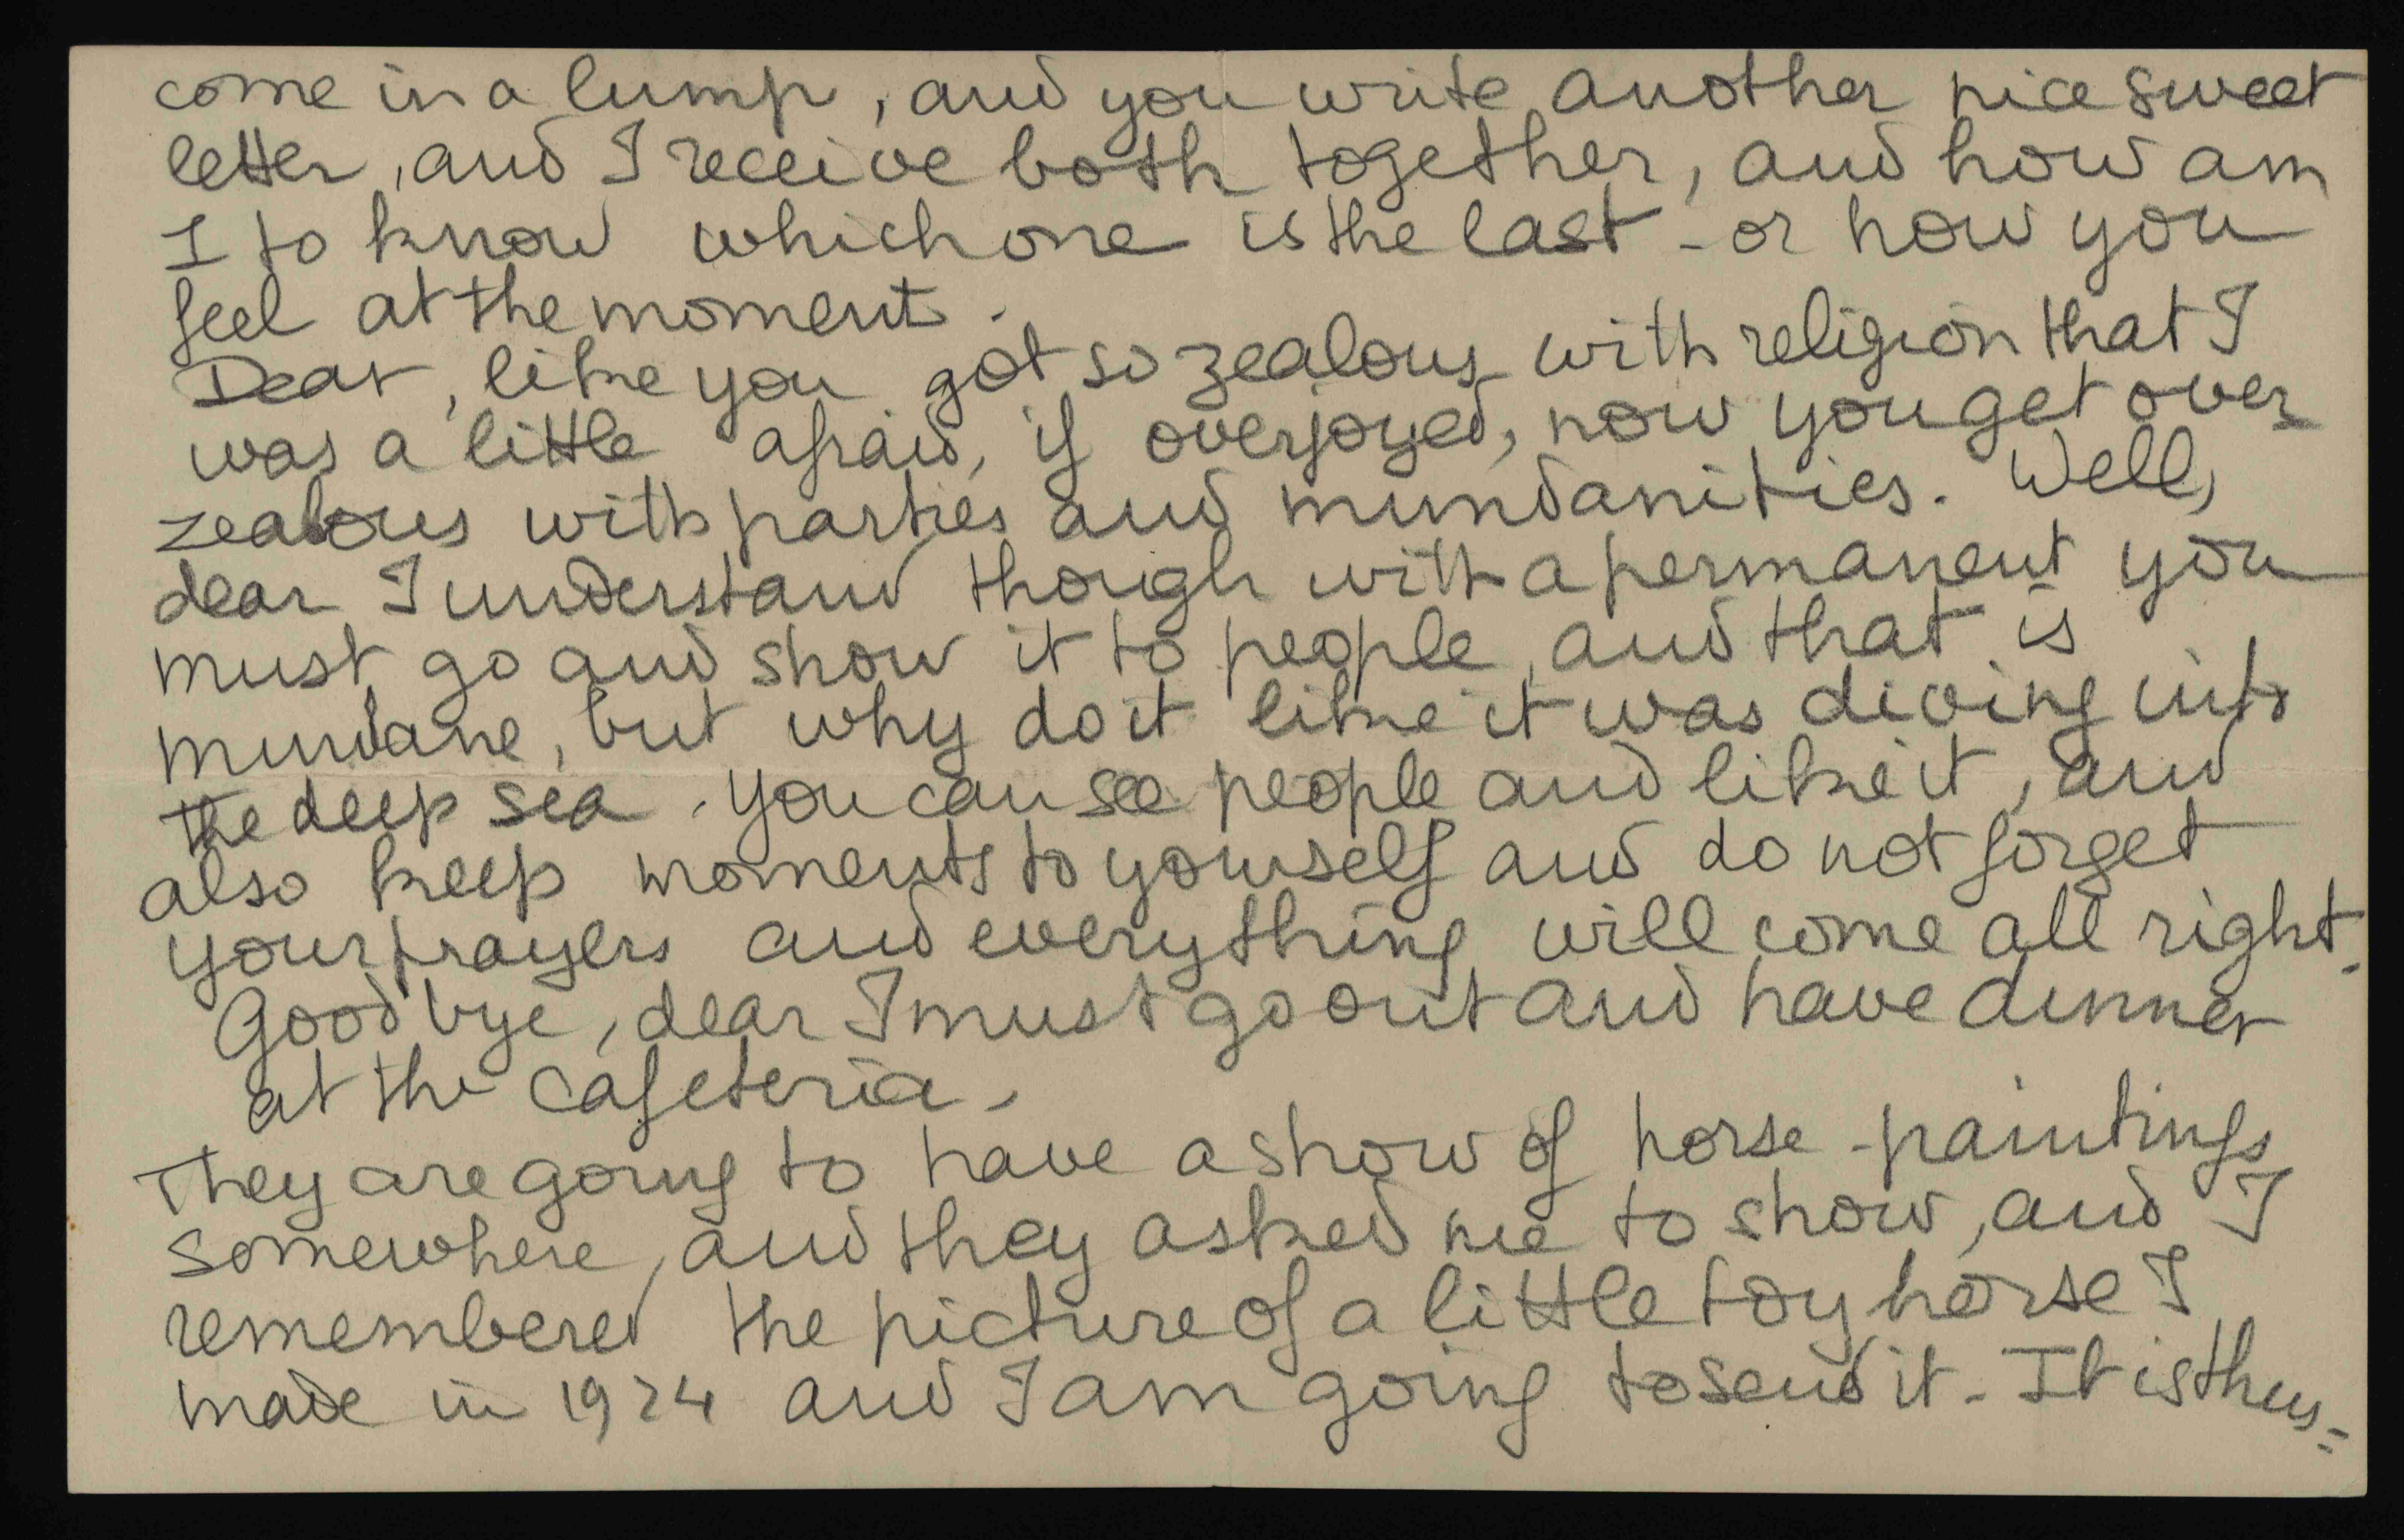 come in a lump, and you write another nice sweet
letter, and I receive both together, and how am
I to know which one is the last - or how you
feel at the moment.
Dear, like you got so zealous with religion that I
was a little afraid, if overjoyed, now you get over
zealous with parties and mundanities. Well,
dear I understand though with a permanent you
must go and show it to people, and that is
mundane, but why do it like it was diving into
the deep sea. You can see people and like it, and
also keep moments to yourself and do not forget
your prayers and everything will come all right.
Good bye, dear I must go out and have dinner
at the cafeteria.
They are going to have a show of horse-paintings
somewhere, and they asked me to show, and I
remembered the picture of a little toy horse I
made in 1924 and I am going to send it. It is thus=